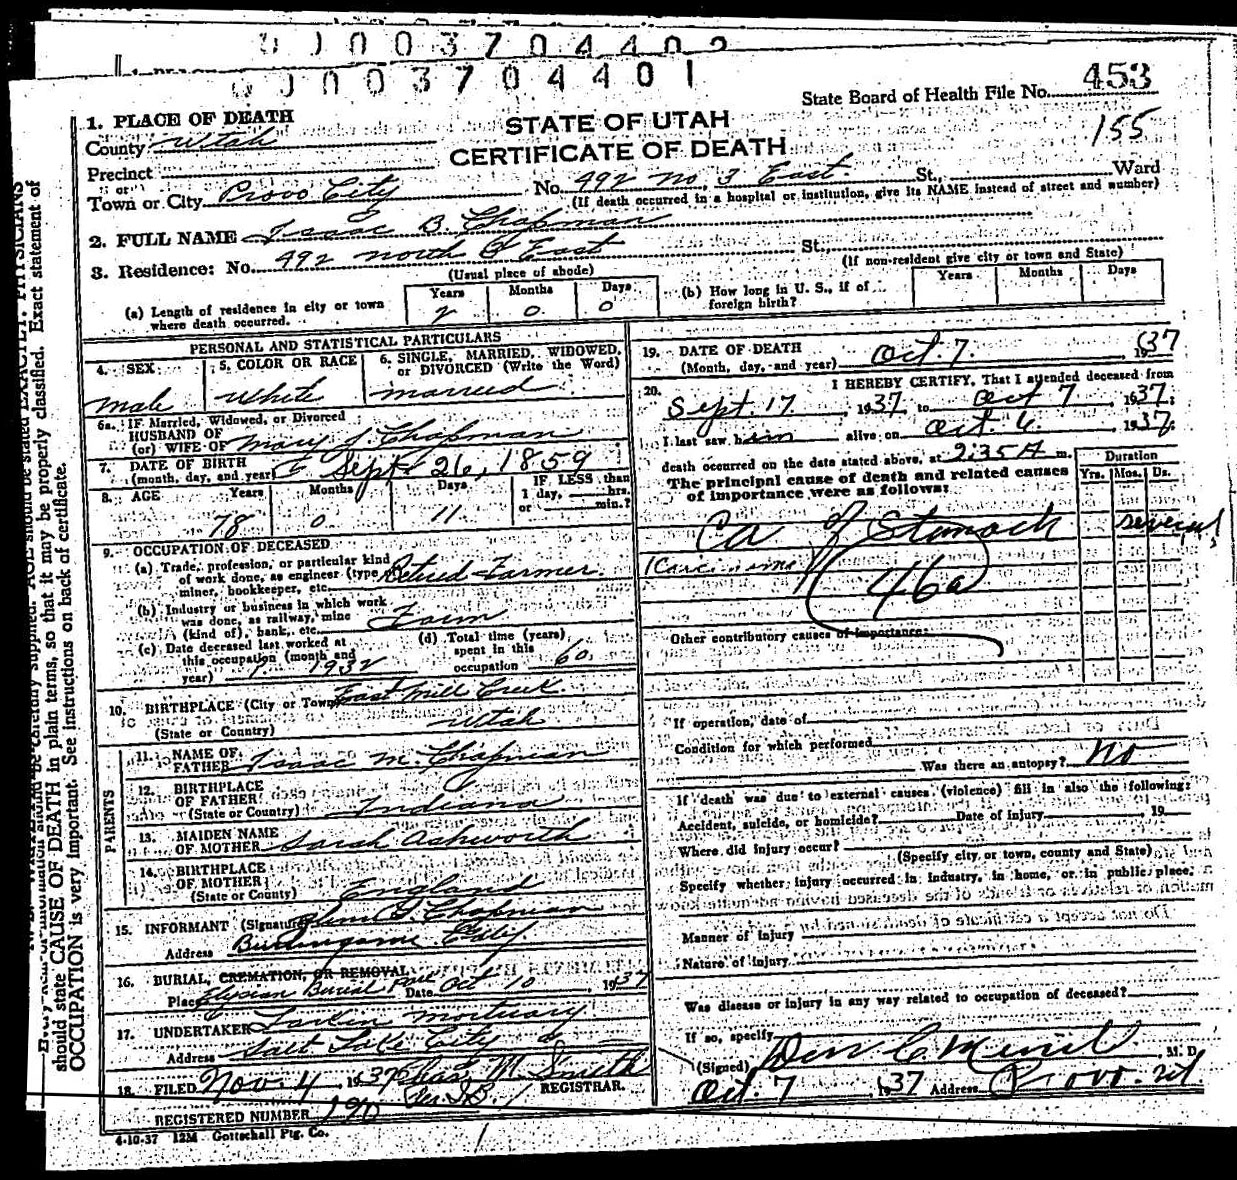 0 0 0 0 3 7 0 4 4 0 2
0 0 0 0 3 7 0 4 4 0 1
State Board of Health File No. 453
155
STATE OF UTAH
CERTIFICATE OF DEATH
1. PLACE OF DEATH
County Utah
Precinct
or
Town or City Provo City No. 492 No. 3 East. St., Ward
(If death occurred in a hospital or institution, give its NAME instead of street and number)
2. FULL NAME Isaac B. Chapman
3. Residence: No. 492 north East St.
(Usual place of abode)
(If non-resident give city or town and State)
(a) Length of residence in city or town where death occurred. Years 2 Months 0 Days 0
(b) How long in U. S., if of foreign birth? Years Months Days
PERSONAL AND STATISTICAL PARTICULARS
4. SEX male
5. COLOR OR RACE White
6. SINGLE, MARRIED, WIDOWED, or DIVORCED (Write the Word) married
6a. IF Married, Widowed, or Divorced
HUSBAND OF
(or) WIFE OF Mary J. Chapman
7. DATE OF BIRTH
(month, day, and year) Sept 26, 1859
8. AGE Years 78 Months 0 Days 11 IF LESS than 1 day, hrs. or min.?
9. OCCUPATION OF DECEASED
(a) Trade, profession, or particular kind
of work done, as engineer (type
miner, bookkeeper, etc. Retired Farmer
(b) Industry or business in which work
was done, as railway, mine
(kind of), bank, etc. Farm
(c) Date deceased last worked at
this occupation (month and
year) 1932
(d) Total time (years)
spent in this
occupation 60
10. BIRTHPLACE (City or Town) East Mill Creek
(State or Country) Utah
PARENTS
11. NAME OF
FATHER Isaac M. Chapman
12. BIRTHPLACE
OF FATHER
(State or Country) Indiana
13. MAIDEN NAME
OF MOTHER Sarah Ashworth
14. BIRTHPLACE
OF MOTHER
(State or County) England
15. INFORMANT (Signature) Chapman
Address Burlingame Calif.
16. BURIAL, CREMATION, OR REMOVAL
Place Elysian Burial Park Date Oct 10 1937
17. UNDERTAKER Larkin mortuary
Address Salt Lake City
18. FILED Nov. 4, 1937 Chas. M. Smith REGISTRAR.
REGISTERED NUMBER 190
4-10-37 12M Gottschall Ptg. Co.
19. DATE OF DEATH
(Month, day, and year) Oct. 7. 1937
20. I HEREBY CERTIFY, That I attended deceased from
Sept. 17, 1937 to Oct 7, 1937.
I last saw him alive on Oct. 6. 1937
death occurred on the date stated above, at 2:35 A m.
The principal cause of death and related causes
of importance were as follows:
Duration
Yrs. Mos. Ds.
Ca of Stomach several
(Carcinoma)
46a
Other contributory causes of importance:
If operation, date of
Condition for which performed
Was there an autopsy? No
If death was due to external causes (violence) fill in also the following:
Accident, suicide, or homicide? Date of injury , 19
Where did injury occur?
(Specify city or town, county and State)
Specify whether injury occurred in industry, in home, or in public place.
Manner of injury
Nature of injury
Was disease or injury in any way related to occupation of deceased?
If so, specify
(Signed) M. D.
Oct. 7, 1937 Address Provo
should state CAUSE OF DEATH in plain terms, so that it may be properly classified. Exact statement of
OCCUPATION is very important. See instructions on back of certificate.